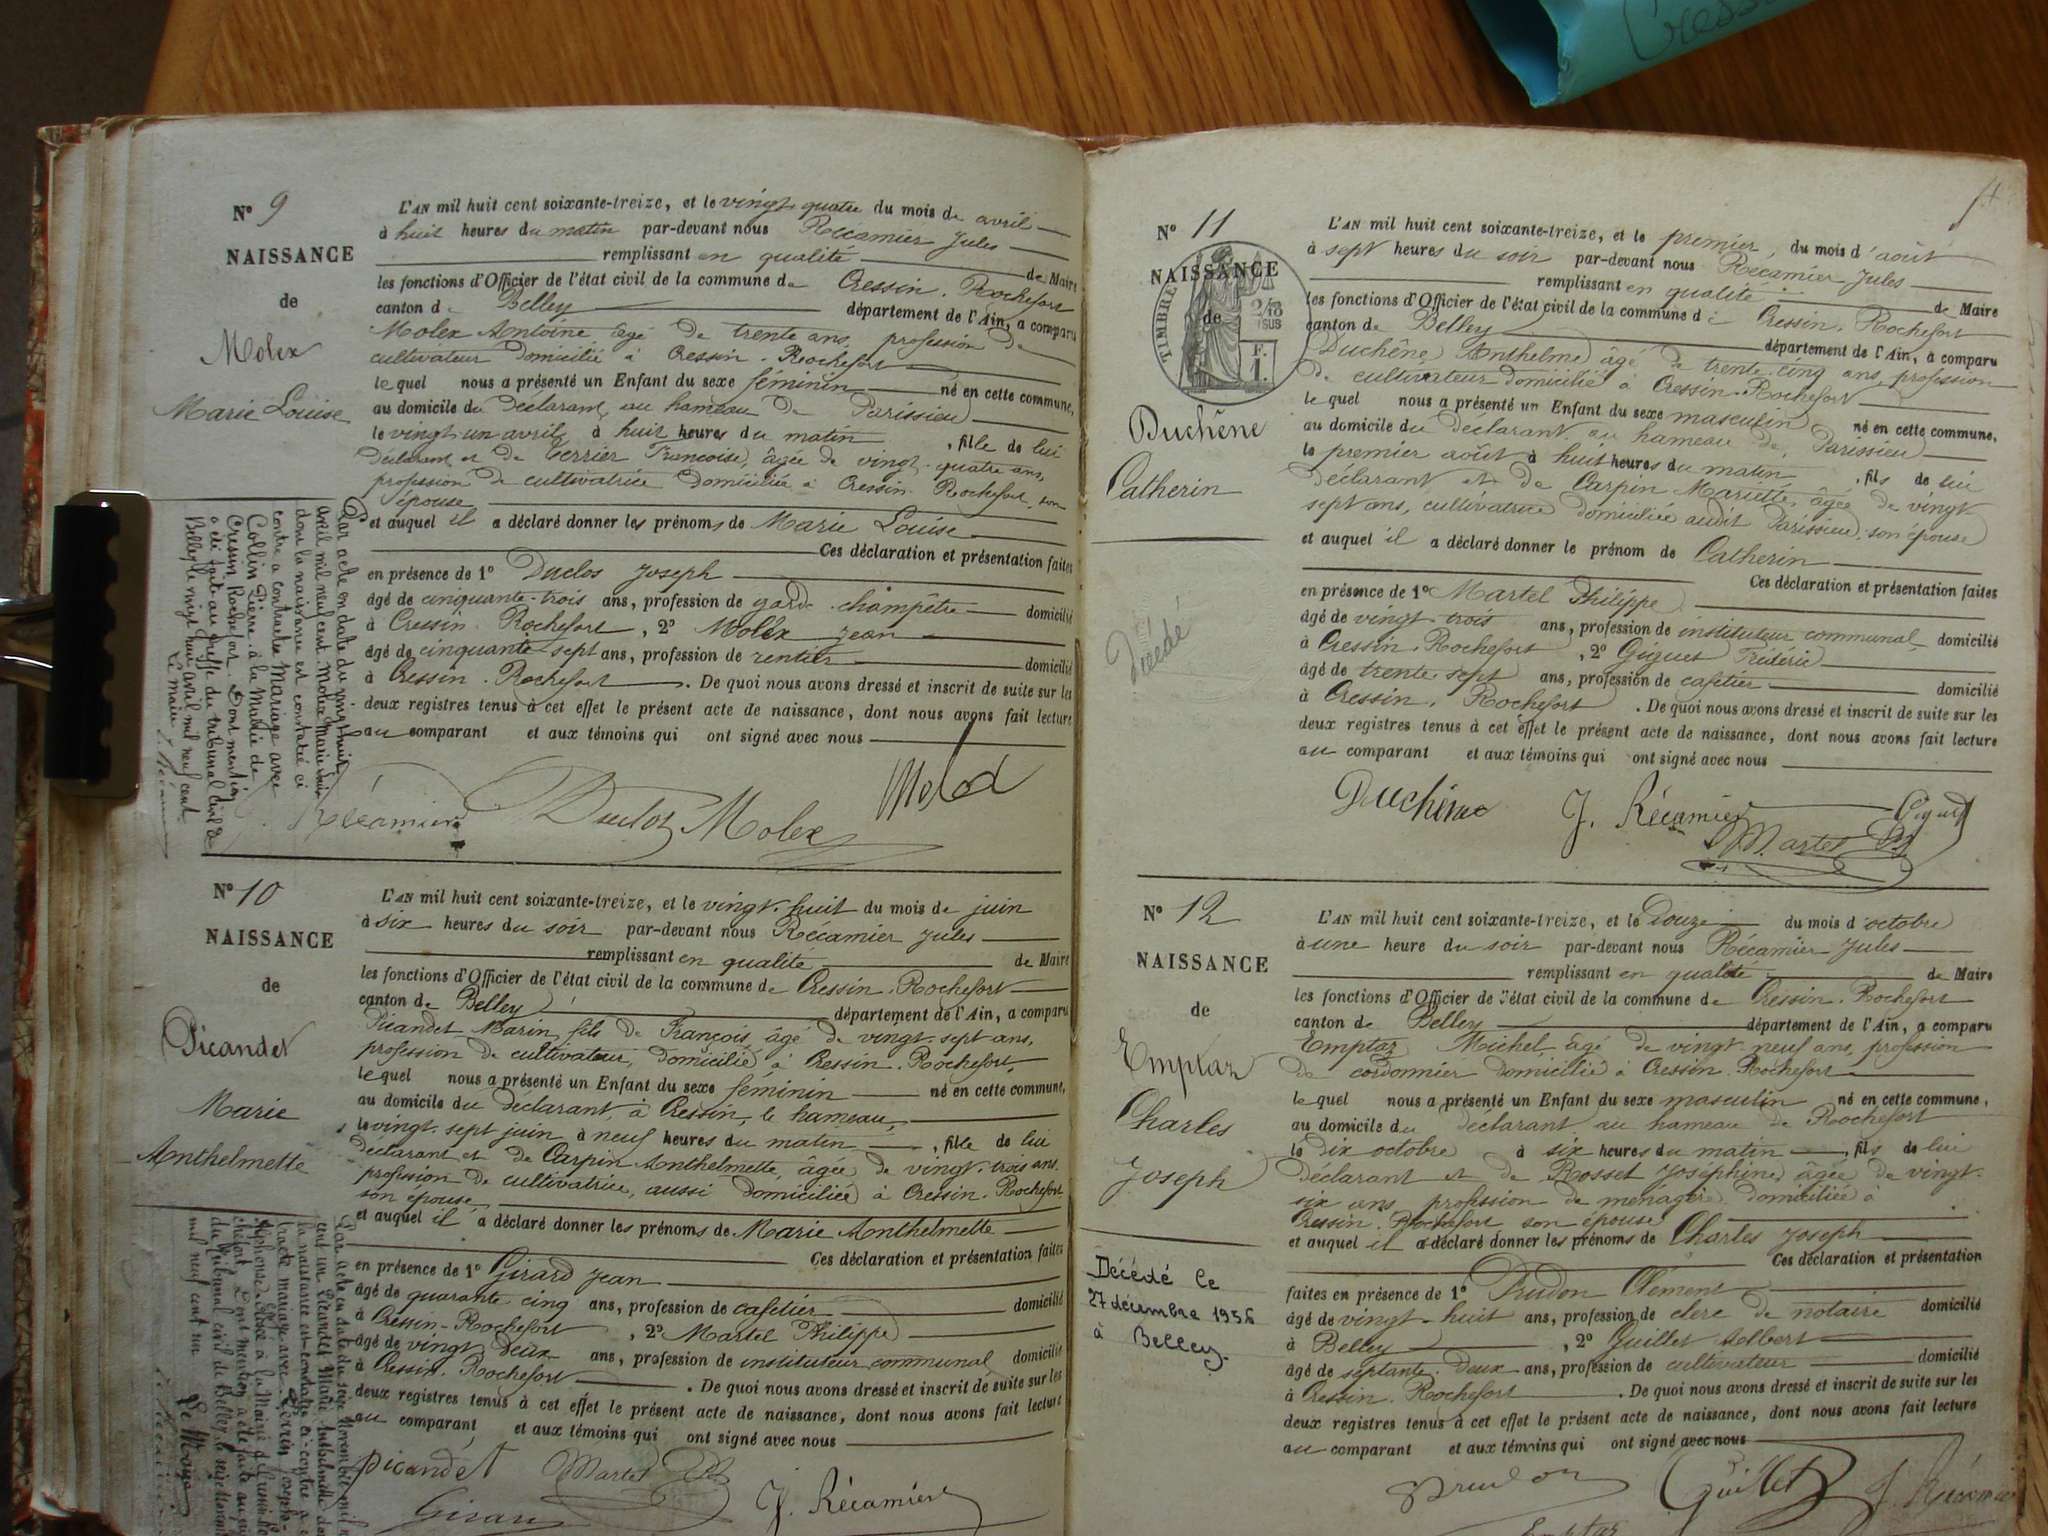 Cress
Nº 9
NAISSANCE
de
Molex
Marie Louise
L'AN mil huit cent soixante-treize, et le vingt quatre du mois de avril
à huit heures du matin par-devant nous Récamier Jules
remplissant en qualité de Maire
les fonctions d'Officier de l'état civil de la commune de Cressin. Rochefort
canton de Belley département de l'Ain, a comparu
Molex Antoine âgé de trente ans, profession de
cultivateur domicilié à Cressin. Rochefort
lequel nous a présenté un Enfant du sexe féminin né en cette commune,
au domicile du déclarant, au hameau de Parissieu
le vingt un avril à huit heures du matin, fille de lui
déclarant et de Terrier Françoise, âgée de vingt-quatre ans,
profession de cultivatrice domiciliée à Cressin. Rochefort, son
épouse
et auquel il a déclaré donner les prénoms de Marie Louise
Ces déclaration et présentation faites
en présence de 1º Duclos Joseph
âgé de cinquante-trois ans, profession de garde champêtre domicilié
à Cressin. Rochefort, 2º Molex Jean
âgé de cinquante-sept ans, profession de rentier domicilié
à Cressin. Rochefort. De quoi nous avons dressé et inscrit de suite sur les
deux registres tenus à cet effet le présent acte de naissance, dont nous avons fait lecture
au comparant et aux témoins qui ont signé avec nous
Par acte en date du vingt huit
avril mil neuf cent Molex Marie Louise
dont la naissance est constatée ci
contre a contracté Mariage avec
Collin Pierre à la Mairie de
Cressin Rochefort. Dont mention
a été faite au greffe du tribunal civil de
Belley le vingt neuf avril mil neuf cent
Le maire J. Récamier
Récamier Duclos Molex Molex
Nº 10
NAISSANCE
de
Picandet
Marie
Anthelmette
L'AN mil huit cent soixante-treize, et le vingt-huit du mois de juin
à six heures du soir par-devant nous Récamier Jules
remplissant en qualité de Maire
les fonctions d'Officier de l'état civil de la commune de Cressin. Rochefort
canton de Belley département de l'Ain, a comparu
Picandet Marin, fils de François, âgé de vingt-sept ans,
profession de cultivateur, domicilié à Cressin. Rochefort,
lequel nous a présenté un Enfant du sexe féminin né en cette commune,
au domicile du déclarant à Cressin, le hameau,
le vingt-sept juin à neuf heures du matin, fille de lui
déclarant et de Carpin Anthelmette âgée de vingt-trois ans
profession de cultivatrice, aussi domiciliée à Cressin. Rochefort
son épouse
et auquel il a déclaré donner les prénoms de Marie Anthelmette
Ces déclaration et présentation faites
en présence de 1º Girard Jean
âgé de quarante cinq ans, profession de cafetier domicilié
à Cressin-Rochefort, 2º Martel Philippe
âgé de vingt deux ans, profession de instituteur communal domicilié
à Cressin. Rochefort. De quoi nous avons dressé et inscrit de suite sur les
deux registres tenus à cet effet le présent acte de naissance, dont nous avons fait lecture
au comparant, et aux témoins qui ont signé avec nous
Par acte en date du seize Novembre mil neuf
cent un Picandet Marie Anthelmette dont
la naissance est constatée ci-contre a con
tracté mariage avec Joseph
Alphonse à la Mairie de Cressin Ro
chefort. Dont mention a été faite au greffe
du tribunal civil de Belley le
mil neuf cent un
Le Maire
Picandet Martel Ph
Girard J. Récamier
Nº 11
NAISSANCE
de
TIMBRE
2/10
SUS
F.
1.
Duchêne
Catherin
Décédé
L'AN mil huit cent soixante-treize, et le premier du mois d'août
à sept heures du soir par-devant nous Récamier Jules
remplissant en qualité de Maire
les fonctions d'Officier de l'état civil de la commune de Cressin. Rochefort
canton de Belley département de l'Ain, a comparu
Duchêne Anthelme âgé de trente-cinq ans, profession
de cultivateur domicilié à Cressin-Rochefort
lequel nous a présenté un Enfant du sexe masculin né en cette commune,
au domicile du déclarant au hameau de Parissieu
le premier août à huit heures du matin, fils de lui
déclarant et de Carpin Mariette, âgée de vingt
sept ans, cultivatrice domiciliée audit Parissieu, son épouse
et auquel il a déclaré donner le prénom de Catherin
Ces déclaration et présentation faites
en présence de 1º Martel Philippe
âgé de vingt trois ans, profession de instituteur communal domicilié
à Cressin. Rochefort, 2º Giguet Frédéric
âgé de trente-sept ans, profession de cafetier domicilié
à Cressin. Rochefort. De quoi nous avons dressé et inscrit de suite sur les
deux registres tenus à cet effet le présent acte de naissance, dont nous avons fait lecture
au comparant et aux témoins qui ont signé avec nous
Duchêne J. Récamier Giguet
Martel Ph
Nº 12
NAISSANCE
de
Emptaz
Charles
Joseph
Décédé le
27 décembre 1956
à Belley.
L'AN mil huit cent soixante-treize, et le Douze du mois d'octobre
à une heure du soir par-devant nous Récamier Jules
remplissant en qualité de Maire
les fonctions d'Officier de l'état civil de la commune de Cressin. Rochefort
canton de Belley département de l'Ain, a comparu
Emptaz Michel âgé de vingt-neuf ans, profession
de cordonnier domicilié à Cressin. Rochefort
lequel nous a présenté un Enfant du sexe masculin né en cette commune,
au domicile du déclarant au hameau de Rochefort
le dix octobre à six heures du matin, fils de lui
déclarant et de Rosset Joséphine âgée de vingt-
six ans profession de menagère domiciliée à
Cressin. Rochefort son épouse
et auquel il a déclaré donner les prénoms de Charles Joseph
Ces déclaration et présentation
faites en présence de 1º Prudon Clément
âgé de vingt-huit ans, profession de clerc de notaire domicilié
à Belley, 2º Guillet Aelbert
âgé de septante-deux ans, profession de cultivateur domicilié
à Cressin. Rochefort. De quoi nous avons dressé et inscrit de suite sur les
deux registres tenus à cet effet le présent acte de naissance, dont nous avons fait lecture
au comparant et aux témoins qui ont signé avec nous
Prudon Guillet J. Récamier
Emptaz